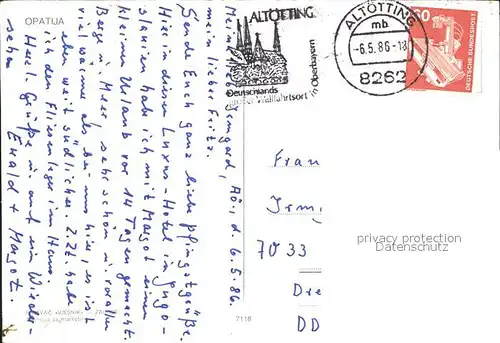 OPATIJA
Meine liebe Irmgard, AÖ, d. 6.5.86
mein lieber Fritz.
Sende Euch ganz liebe Pfingstgrüße.
Hier in diesem Luxus-Hotel in Jugo-
slavien habe ich mit Margot einen
kleinen Urlaub vor 14 Tagen gemacht.
Berge u. Meer, sehr schön u. vor allem
viel wärmer als bei uns hier, es ist
eben weit südlicher. Z.Zt. habe
ich den Fliesenleger im Haus.
Herzl. Grüße u. auf ein Wieder-
sehn
Ewald + Margot.
7118
ALTÖTTING
Deutschlands
großer Wallfahrtsort in Oberbayern
ALTÖTTING
mb
-6.5.86-18
8262
60
DEUTSCHE BUNDESPOST
Frau
Irm
7033
Dre
DD
privacy protection
Datenschutz